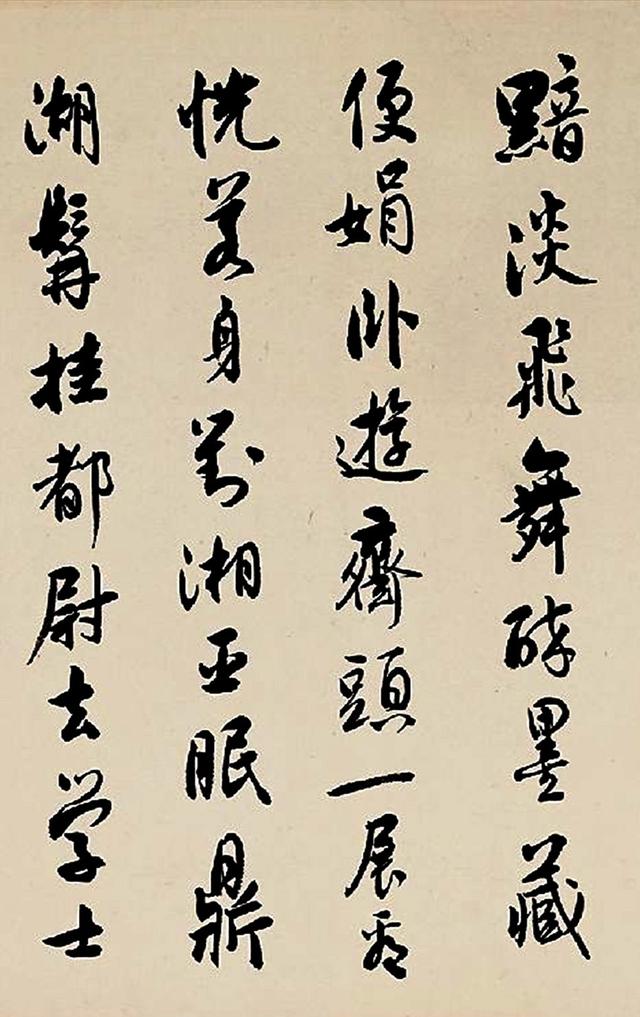 黯淡飛舞醉墨藏
便娟卧遊齋頭一展看
恍若身對湘西眠鼎
湖髯挂都尉去学士